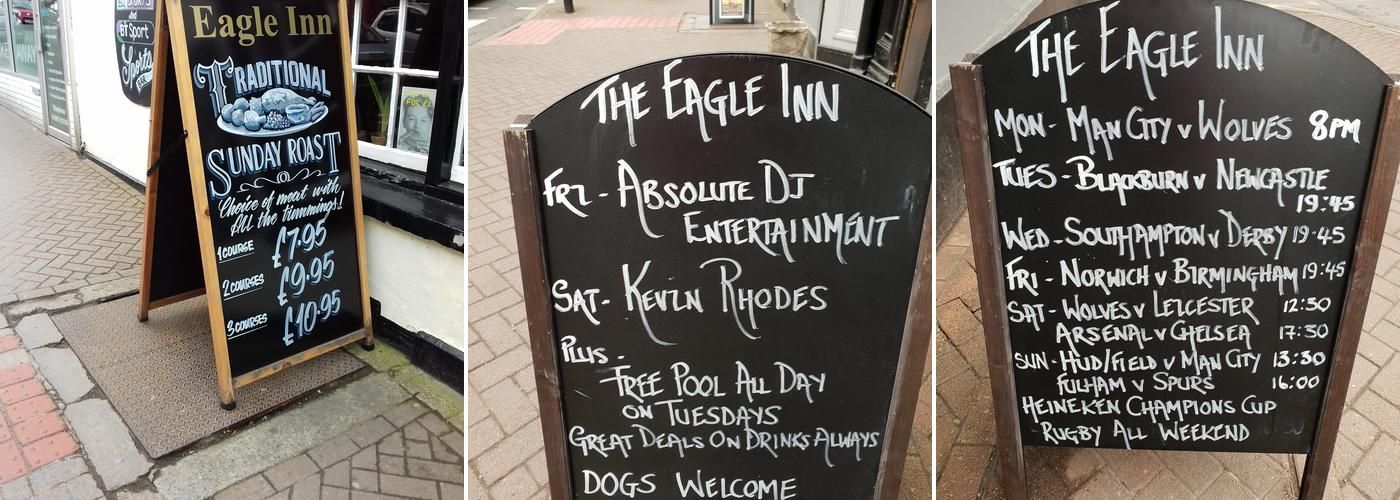 BT Sport
Sports
Eagle Inn
TRADITIONAL
SUNDAY ROAST
Choice of meat with
All the trimmings!
1 COURSE £7.95
2 COURSES £9.95
3 COURSES £10.95
FOR £1
THE EAGLE INN
FRI - ABSOLUTE DJ
ENTERTAINMENT
SAT - KEVIN RHODES
PLUS -
FREE POOL ALL DAY
ON TUESDAYS
GREAT DEALS ON DRINKS ALWAYS
DOGS WELCOME
THE EAGLE INN
MON - MAN CITY v WOLVES 8PM
TUES - BLACKBURN v NEWCASTLE
19:45
WED - SOUTHAMPTON v DERBY 19:45
FRI - NORWICH v BIRMINGHAM 19:45
SAT - WOLVES v LEICESTER 12:30
ARSENAL v CHELSEA 17:30
SUN - HUD/FIELD v MAN CITY 13:30
FULHAM v SPURS 16:00
HEINEKEN CHAMPIONS CUP
RUGBY ALL WEEKEND